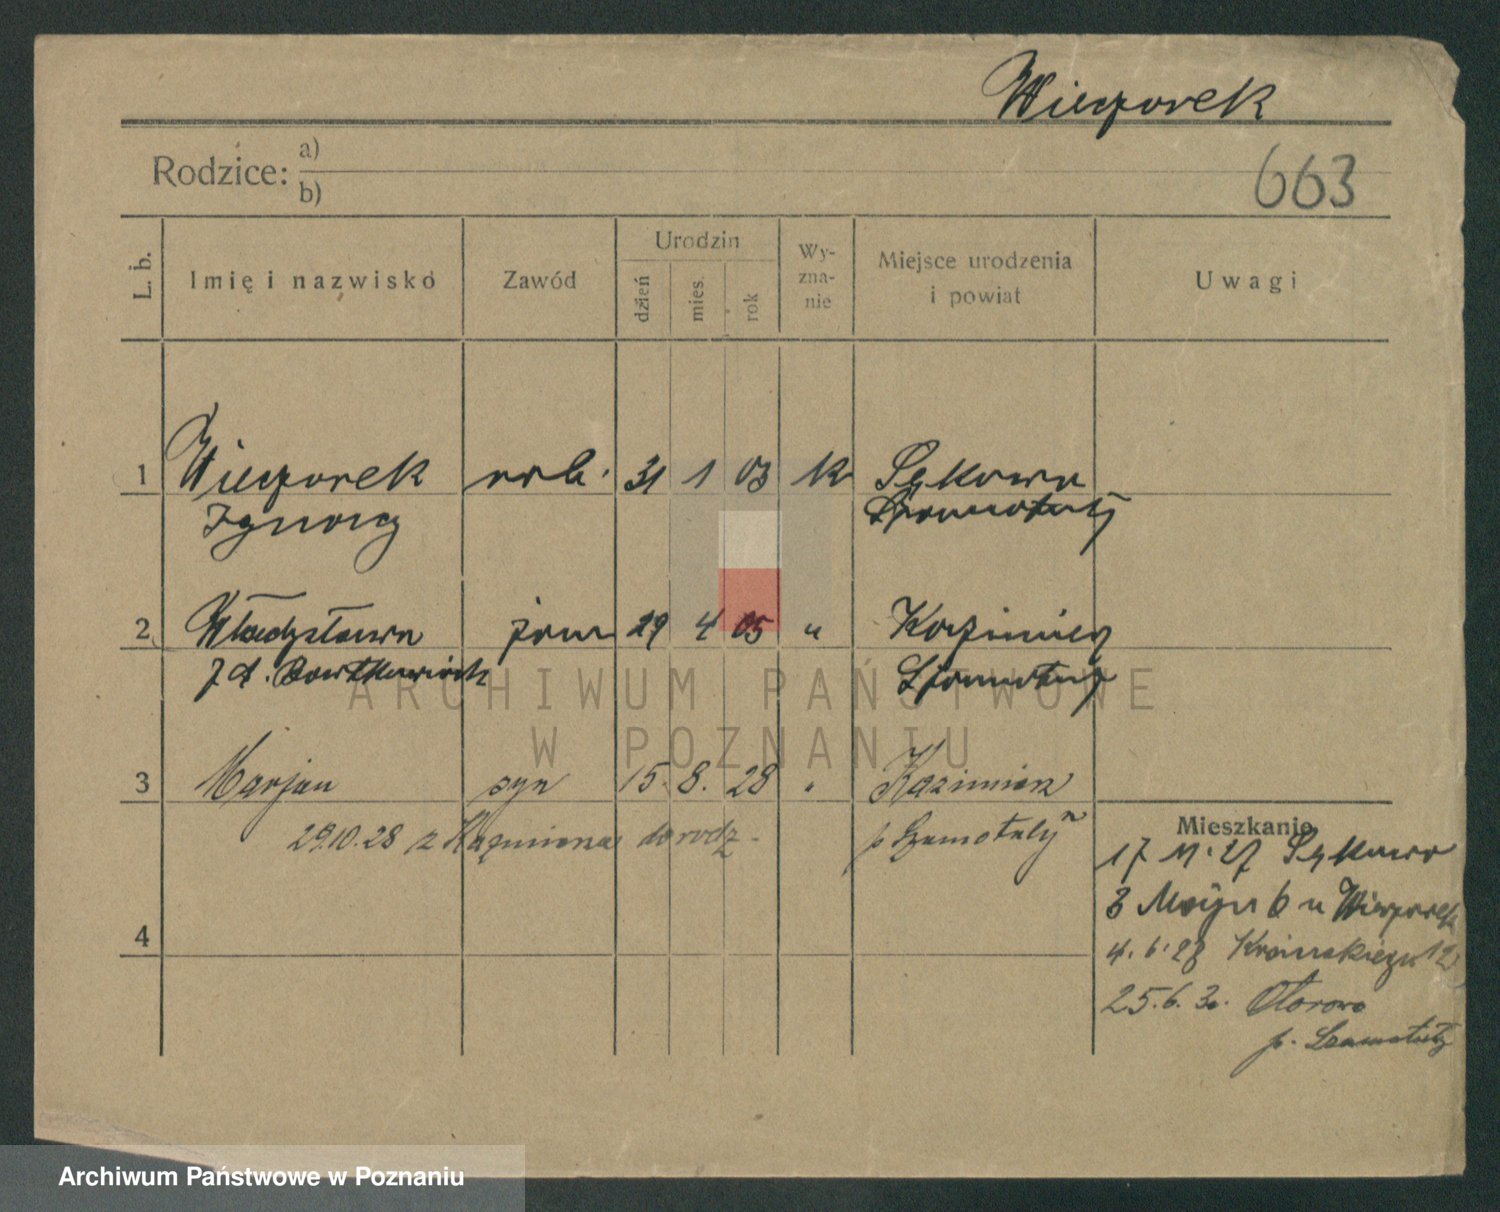 Wieczorek
Rodzice: a)
b)
663
L. b. Imię i nazwisko Zawód Urodzin dzień mies. rok Wy-zna-nie Miejsce urodzenia i powiat Uwagi
1 Wieczorek rob. 31 1 03 k Sękowo
Ignacy Szamotuły
2 Władysława żona 29 4 05 " Kaźmierz
z d. Bartkowiak Szamotuły
3 Marjan syn 15. 8. 28 " Kazimierz
29.10.28 z Kaźmierza do rodz. p Szamotuły
Mieszkanie
17 11. 27 Sękowo
3 Maja 6 u Wieczorek
4. 6. 28 12
25. 6. 30. Otorowo
p. Szamotuły
4
ARCHIWUM PAŃSTWOWE
W POZNANIU
Archiwum Państwowe w Poznaniu